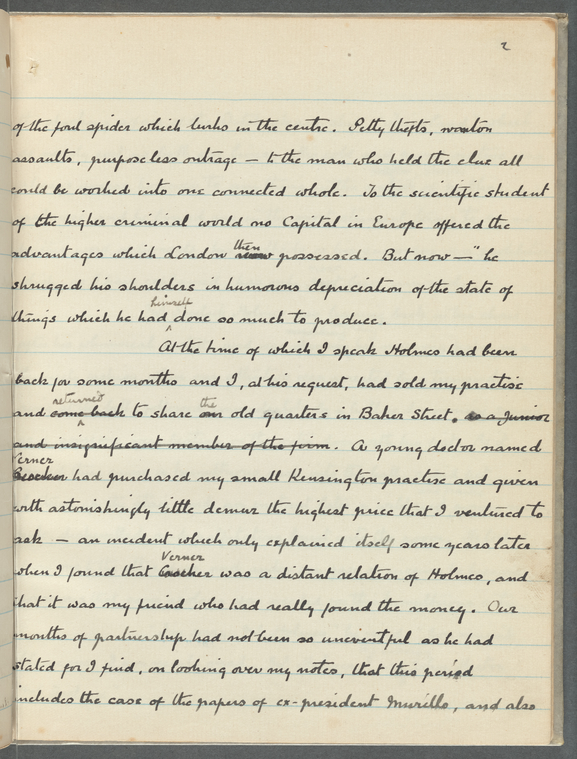 2
of the foul spider which lurks in the centre. Petty thefts, wanton
assaults, purposeless outrage — to the man who held the clue all
could be worked into one connected whole. To the scientific student
of the higher criminal world no Capital in Europe offered the
then
advantages which London now possessed. But now —" he
shrugged his shoulders in humorous depreciation of the state of
himself
things which he had done so much to produce.
At the time of which I speak Holmes had been
back for some months and I, at his request, had sold my practise
returned the
and come back to share our old quarters in Baker Street. as a junior
and insignificant member of the firm. A young doctor named
Verner
had purchased my small Kensington practise and given
with astonishingly little demur the highest price that I ventured to
ask — an incident which only explained itself some years later
Verner
when I found that was a distant relation of Holmes, and
that it was my friend who had really found the money. Our
months of partnership had not been so uneventful as he had
stated for I find, on looking over my notes, that this period
includes the case of the papers of ex-president Murillo, and also